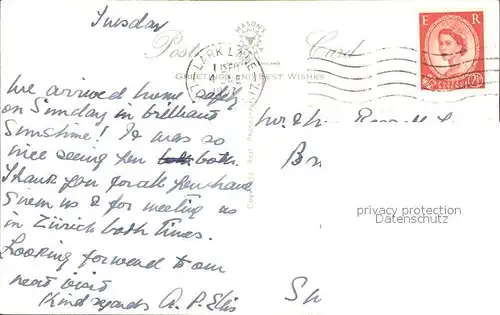 Tuesday
MASON'S
Post Card
GREETINGS AND BEST WISHES
LARK LANE
LIVERPOOL 17
E R
2½D
We arrived home safely
on Sunday in brilliant
Sunshine! It was so
nice seeing you both.
Thank you for all you have
given us & for meeting us
in Zürich both times.
Looking forward to our
next visit
Kind regards A. P. Ellis
Mr & Mrs
privacy protection
Datenschutz